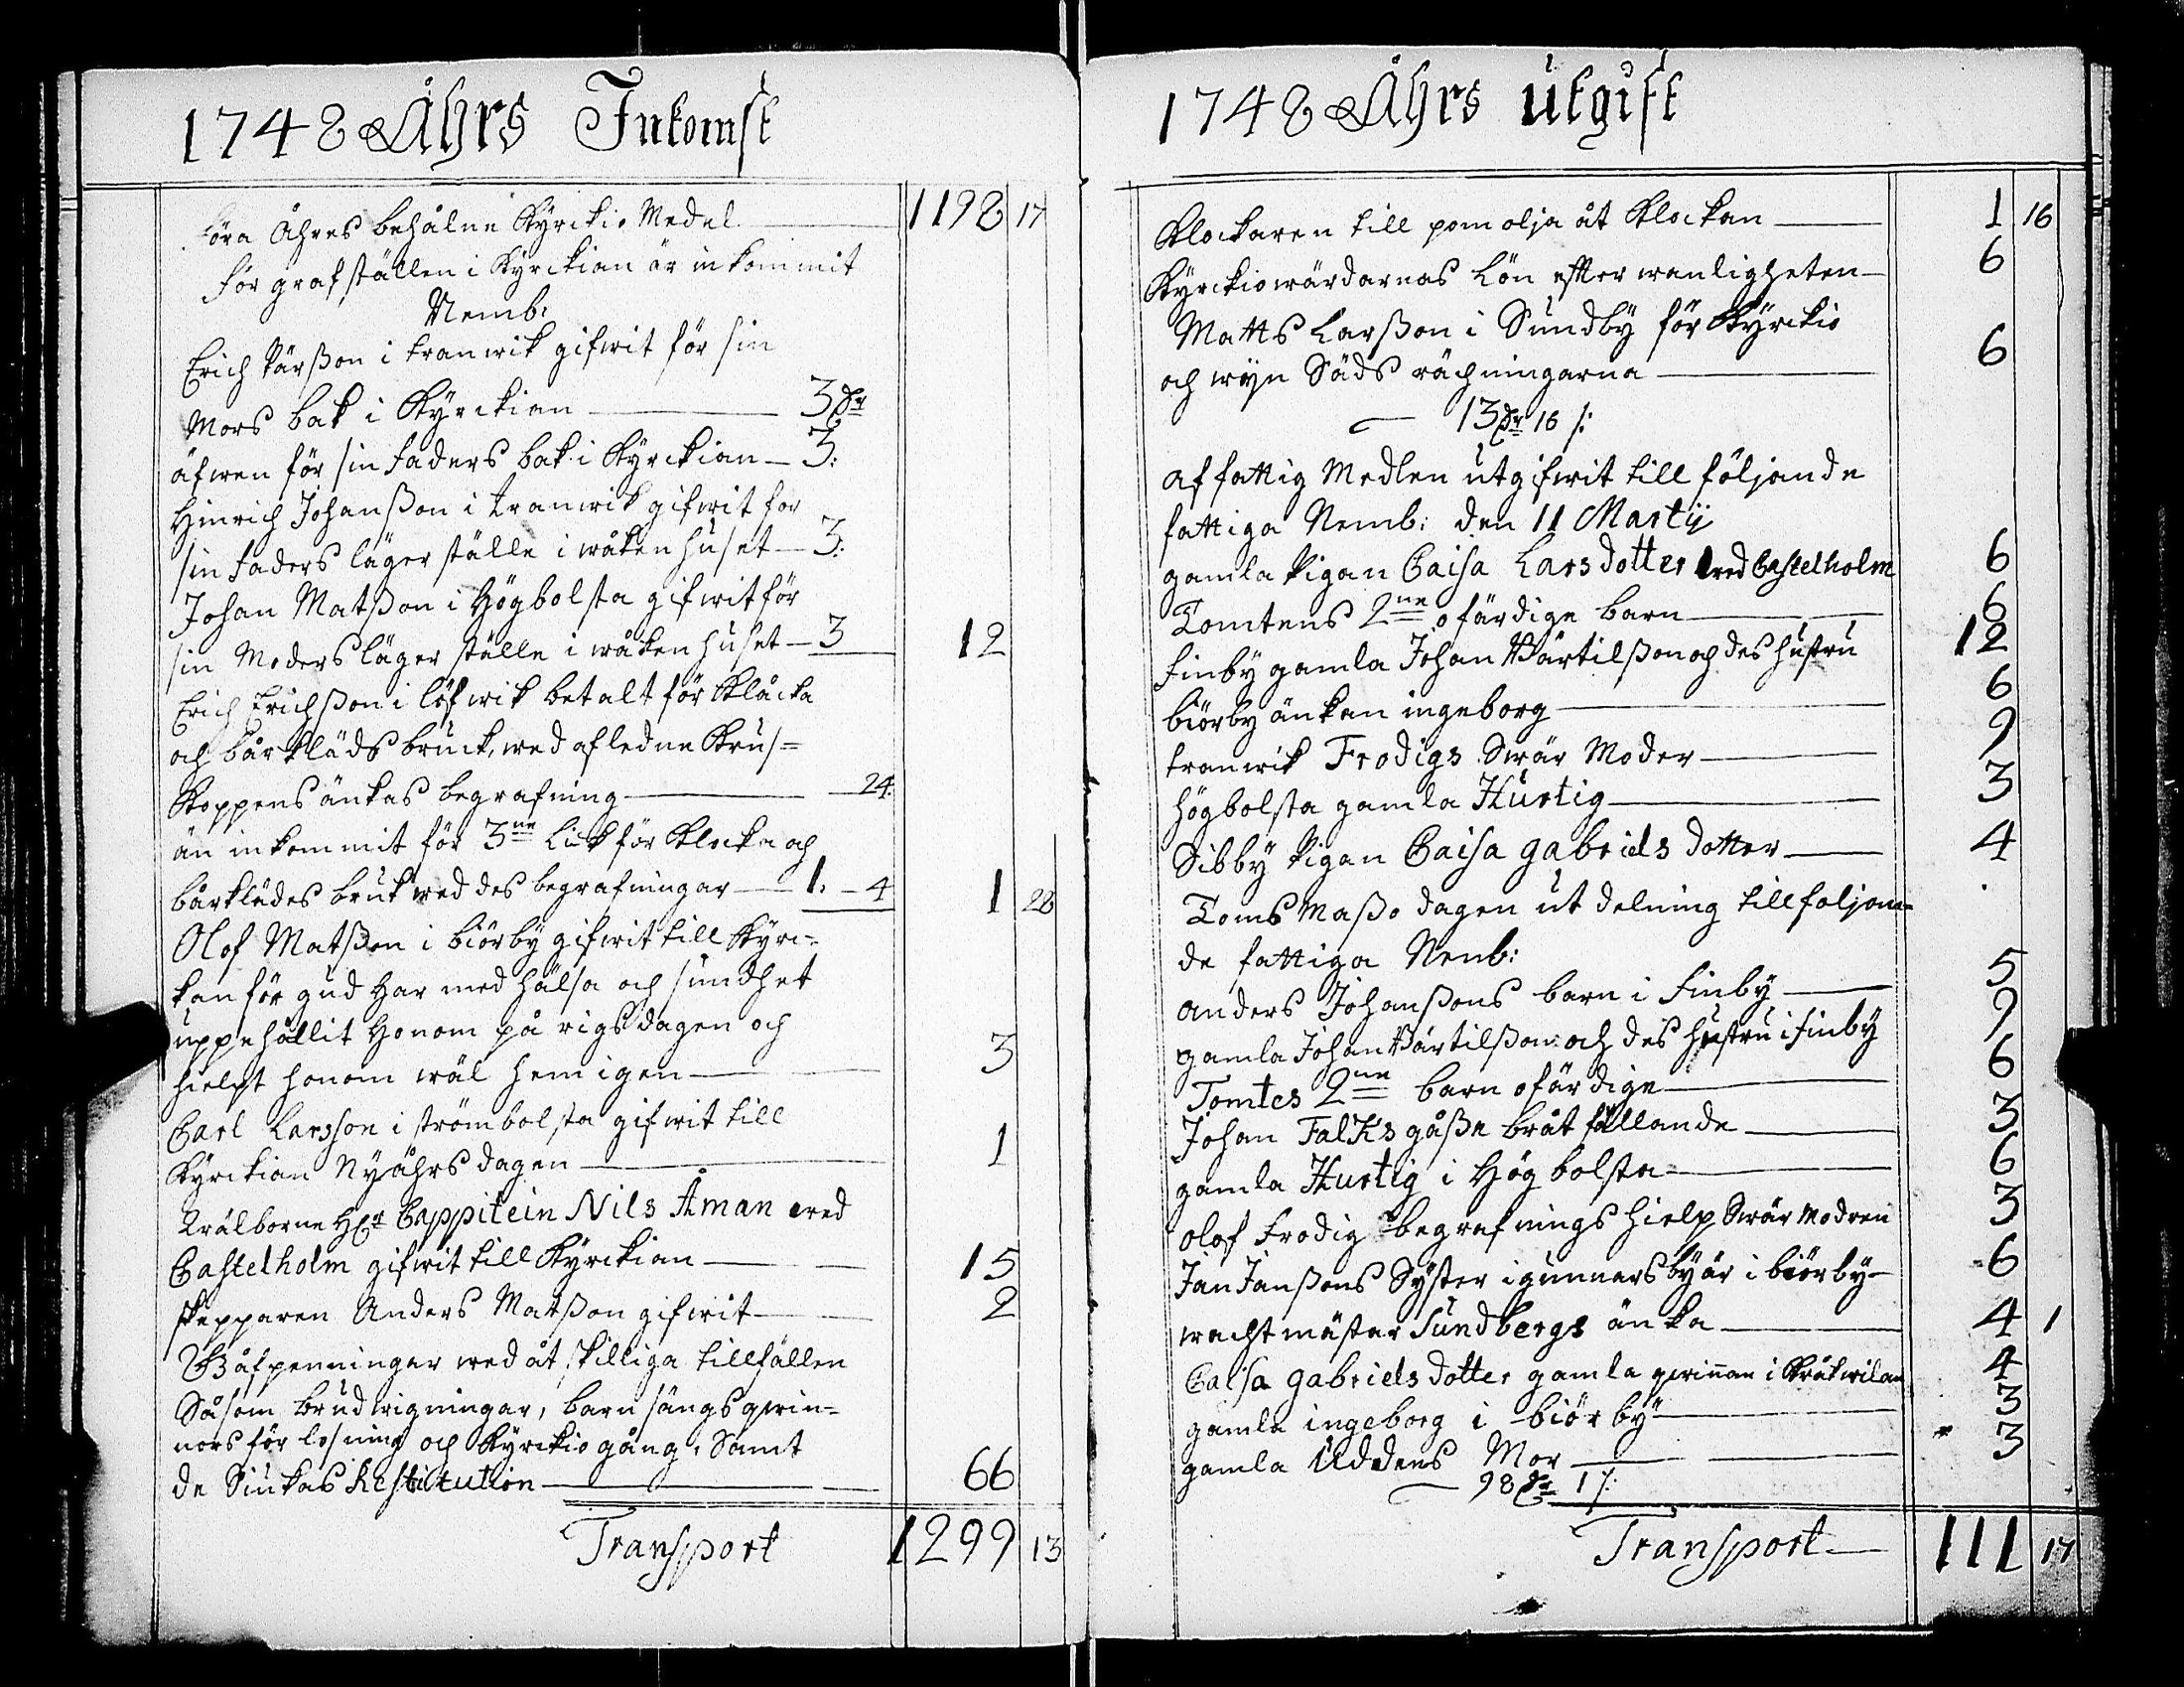 1748 Åhrs Inkomst
föra Åhres behålne Kÿrckio Medel — 1198 17
för graf ställen i Kÿrckian är inkommit
Nemb:
Erich Pärßon i tranwik gifwit för sin
Mors bak i Kÿrckian — 3 Dr
äfwen för sin faders bak i Kÿrckian — 3:
Hinrich Johanßon i tranwik gifwit for
sin faders läger ställe i wåken huset — 3:
Johan Matßon i Högbolsta gifwit för
sin Moders läger ställe i wåken huset — 3 12
Erich Erichßon i löfwik betalt för Klåcka
och bårkläds bruck, wed afledne Krus=
Koppens änkas begrafning — 24.
än inkommit för 3ne Lik för Klocka och
bårklädes bruk wed des begrafningar — 1. – 4 1 28
Olof Matßon i biörbÿ gifwit till Kÿrc=
kan för gud Har med hälsa och sundhet
uppehållit Honom på rigsdagen och
hielpt honom wäl hem igen — 3
Carl Larsson i strömbolsta gifwit till
Kÿrckian Nÿåhrs dagen — 1
Wälborne Hr Cappitein Nils Åman wed
Castelholm gifwit till Kÿrckian — 15
skepparen Anders Matßon gifwit — 2
Håfpenningar wed åtskilliga tillfällen
Såsom brudwigningar, barnsängsqwin=
nors förlosning och Kÿrckiogång, Samt
de Siukas Restitution — 66
Transport 1299 13
1748 Åhrs utgift
Klockaren till pomolja åt Klockan — 1 16
Kÿrckiowärdarnas Lön efter wanligheten — 6
Matts Larßon i Sundbÿ för Kÿrckio
och wijn Säds räkningarna — 6
— 13 Dr 16 /:
af fattig Medlen utgifwit till följande
fattiga Nemb: den 11 Martij
gamla Pigan Caisa Larsdotter wed Castelholm 6
Tomtens 2ne ofärdige barn — 6
finbÿ gamla Johan Bärtilßon och des hustru 12
biörbÿ änkan ingeborg — 6
tranwik Frodigs Swär Moder — 9
högbolsta gamla Hurtig — 3
Sibbÿ Pigan Caisa gabrielsdotter — 4
Toms Maßo dagen utdelning till foljan=
de fattiga Nemb:
anders Johanßons barn i finbÿ — 5
gamla Johan Bärtilßon och des hustru i finbÿ 9
Tomtes 2ne barn ofärdige — 6
Johan Falks gåße bråtfällande — 3
gamla Hurtig i Högbolsta — 6
olof frodig begrafnings hielp Swär modren 3
Jan Janßons Sÿster i gunnarsbÿ är i biörbÿ — 6
wachtmästar Sundbergs änka — 4 1
Caisa gabrielsdotter gamla qwinnan i Kråkwilan 4
gamla ingeborg i biörbÿ — 3
gamla Uddens Mor — 3
— 98 Dr 1 /:
Transport — 111 17